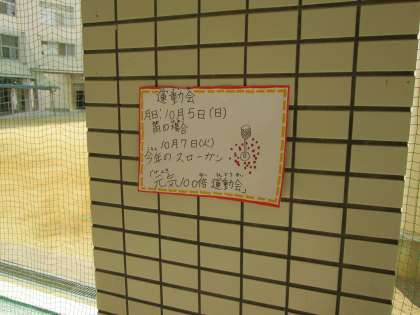 運動会
月日:10月5日(日)
雨の場合
10月7日(火)
今年のスローガン
「元気100倍運動会」